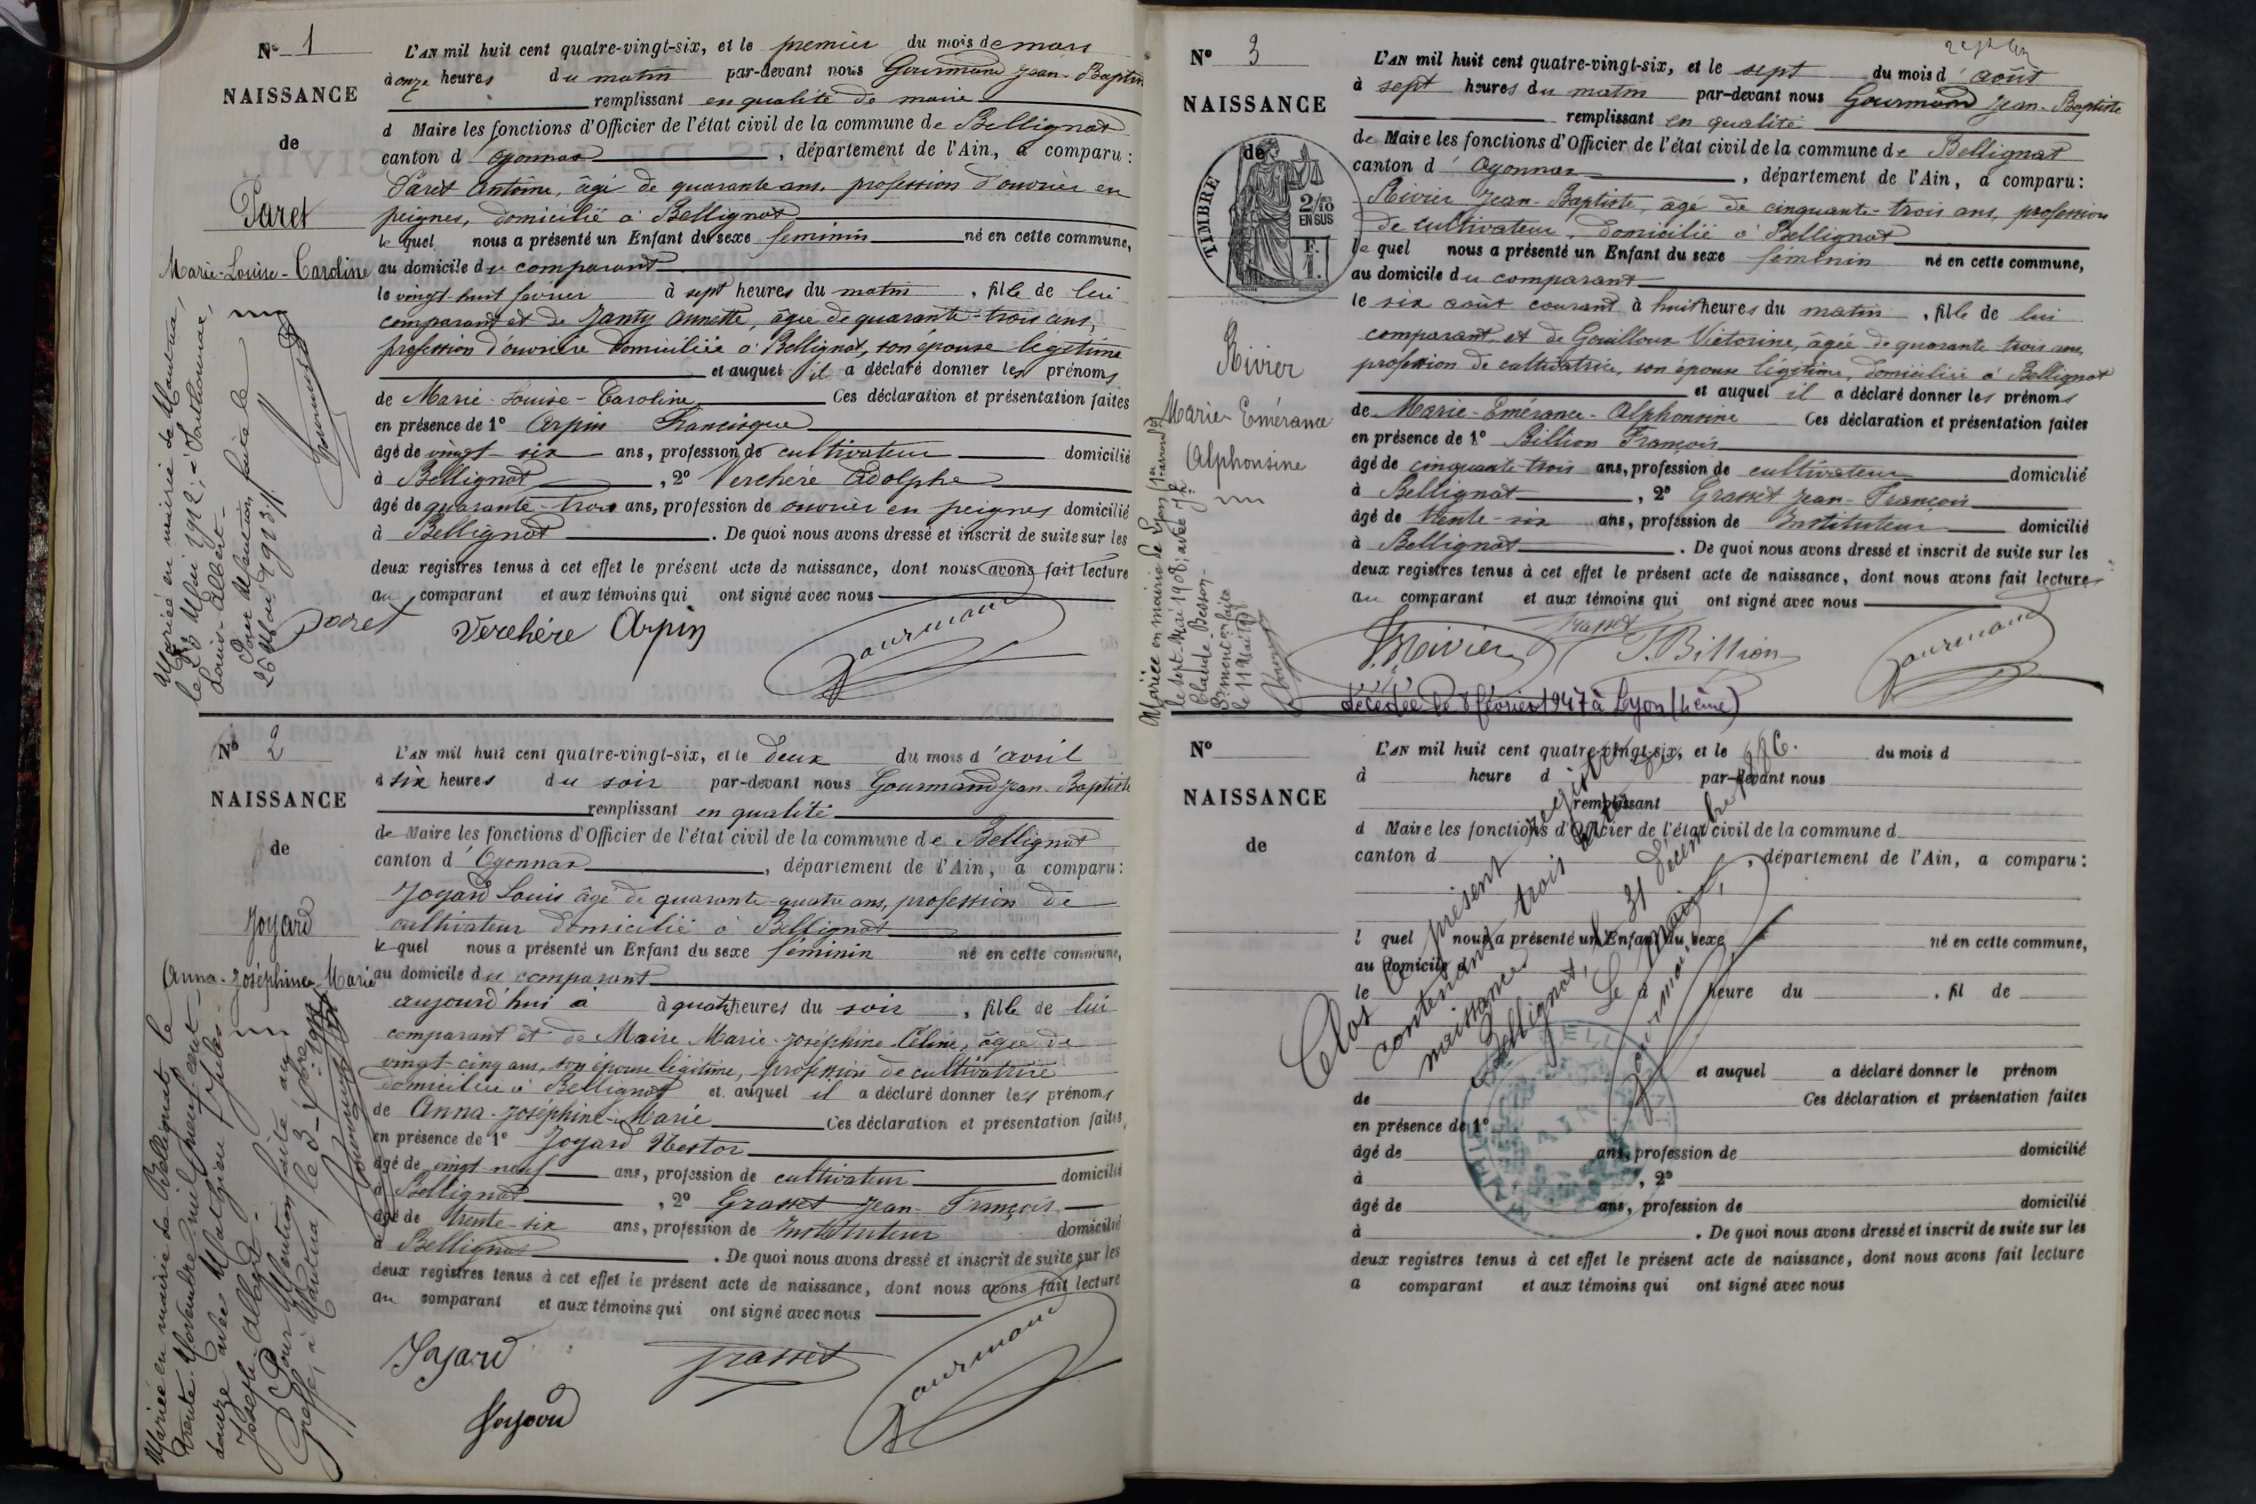 N° 1
NAISSANCE
de
Paret
Marie-Louise-Caroline
L'AN mil huit cent quatre-vingt-six, et le premier du mois de mars
à onze heures du matin par-devant nous Gourmand Jean-Baptiste
remplissant en qualité de maire
d Maire les fonctions d'Officier de l'état civil de la commune de Bellignat
canton d'Oyonnax, département de l'Ain, a comparu :
Paret Antoine, âgé de quarante ans, profession d'ouvrier en
peignes, domicilié à Bellignat
lequel nous a présenté un Enfant du sexe féminin né en cette commune,
au domicile du comparant
le vingt-huit février à sept heures du matin, fille de lui
comparant et de Janty Annette, âgée de quarante-trois ans,
profession d'ouvrière domiciliée à Bellignat, son épouse légitime
et auquel il a déclaré donner les prénoms
de Marie-Louise-Caroline Ces déclaration et présentation faites
en présence de 1° Arpin Francisque
âgé de vingt-six ans, profession de cultivateur domicilié
à Bellignat, 2° Verchère Adolphe
âgé de quarante-trois ans, profession de ouvrier en peignes domicilié
à Bellignat. De quoi nous avons dressé et inscrit de suite sur les
deux registres tenus à cet effet le présent acte de naissance, dont nous avons fait lecture
au comparant et aux témoins qui ont signé avec nous
Paret Verchère Arpin Gourmand
Mariée en mairie de
le 23 Mai 1912, à
Louis-Albert
Pour Mention faite le
26 1913
Gourmand
N° 2
NAISSANCE
de
Joyard
Anna-Joséphine-Marie
L'AN mil huit cent quatre-vingt-six, et le deux du mois d'avril
à six heures du soir par-devant nous Gourmand Jean-Baptiste
remplissant en qualité
de Maire les fonctions d'Officier de l'état civil de la commune de Bellignat
canton d'Oyonnax, département de l'Ain, a comparu :
Joyard Louis âgé de quarante-quatre ans, profession de
cultivateur domicilié à Bellignat
lequel nous a présenté un Enfant du sexe féminin né en cette commune,
au domicile du comparant
aujourd'hui à à quatre heures du soir, fille de lui
comparant et de Maire Marie-Joséphine Céline, âgée de
vingt-cinq ans, son épouse légitime, profession de cultivatrice
domiciliée à Bellignat et auquel il a déclaré donner les prénoms
de Anna-Joséphine-Marie Ces déclaration et présentation faites,
en présence de 1° Joyard Nestor
âgé de vingt-neuf ans, profession de cultivateur domicilié
à Bellignat, 2° Grasset Jean-François
âgé de trente-six ans, profession de Instituteur domicilié
à Bellignat. De quoi nous avons dressé et inscrit de suite sur les
deux registres tenus à cet effet le présent acte de naissance, dont nous avons fait lecture
au comparant et aux témoins qui ont signé avec nous
Joyard Grasset Gourmand
Joyard
Mariée en mairie de Bellignat le
trente Novembre mil neuf cent
douze avec
Joseph-Albert
Pour Mention faite au
Greffe, à Nantua, le 3
N° 3
NAISSANCE
de
TIMBRE
2/10
EN SUS
Rivier
Marie-Emérance
Alphonsine
L'AN mil huit cent quatre-vingt-six, et le sept du mois d'août
à sept heures du matin par-devant nous Gourmand Jean-Baptiste
remplissant en qualité
de Maire les fonctions d'Officier de l'état civil de la commune de Bellignat
canton d'Oyonnax, département de l'Ain, a comparu :
Rivier Jean-Baptiste, âgé de cinquante-trois ans, profession
de cultivateur, domicilié à Bellignat
lequel nous a présenté un Enfant du sexe féminin né en cette commune,
au domicile du comparant
le six août courant à huit heures du matin, fille de lui
comparant, et de Gouilloux Victorine, âgée de quarante-trois ans,
profession de cultivatrice, son épouse légitime, domiciliée à Bellignat
et auquel il a déclaré donner les prénoms
de Marie-Emérance-Alphonsine Ces déclaration et présentation faites
en présence de 1° Billion François
âgé de cinquante-trois ans, profession de cultivateur domicilié
à Bellignat, 2° Grasset Jean-François
âgé de trente-six ans, profession de Instituteur domicilié
à Bellignat. De quoi nous avons dressé et inscrit de suite sur les
deux registres tenus à cet effet le présent acte de naissance, dont nous avons fait lecture
au comparant et aux témoins qui ont signé avec nous
Rivier Grasset F. Billion Gourmand
décédée le 8 février 1947 à Lyon (4ème)
Mariée en mairie de Lyon
le sept Mai 1908, avec
Claude Besson
Pr mention faite
le 11 Mai 1908
N°
NAISSANCE
de
L'AN mil huit cent quatre-vingt-six, et le du mois d
à heure d par-devant nous
remplissant
d Maire les fonctions d'Officier de l'état civil de la commune d
canton d , département de l'Ain, a comparu :
l quel nous a présenté un Enfant du sexe né en cette commune,
au domicile d
le à heure du , fil de
et auquel a déclaré donner le prénom
de Ces déclaration et présentation faites
en présence de 1°
âgé de ans, profession de domicilié
à , 2°
âgé de ans, profession de domicilié
à . De quoi nous avons dressé et inscrit de suite sur les
deux registres tenus à cet effet le présent acte de naissance, dont nous avons fait lecture
a comparant et aux témoins qui ont signé avec nous
Clos le présent registre
contenant trois actes de
naissances
Bellignat, le 31 Décembre 1886.
Le Maire,
Gourmand